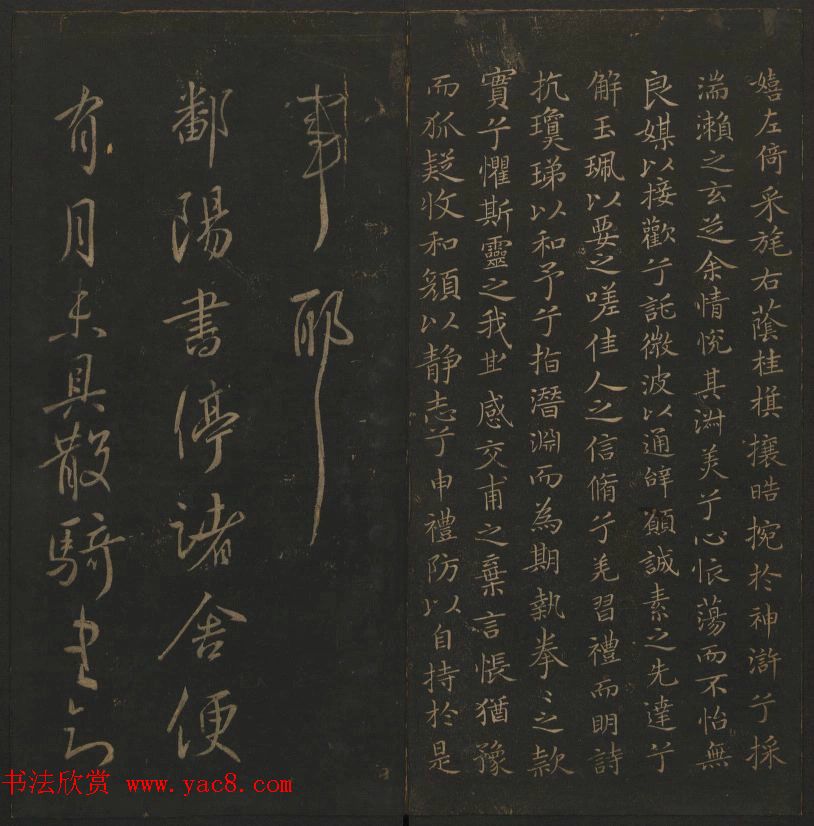 嬉左倚采旄右蔭桂旗攘皓捥於神滸兮採
湍瀨之玄芝余情悅其淑美兮心怅蕩而不怡無
良媒以接歡兮託微波以通辤願誠素之先達兮
解玉珮以要之嗟佳人之信脩兮羌習禮而明詩
抗瓊珶以和予兮指潛淵而為期執拳〻之款
實兮懼斯靈之我欺感交甫之棄言悵猶豫
而狐疑收和顏以静志兮申禮防以自持於是
事耶
鄱陽書停諸舍便
有月未具散騎
书法欣赏 www.yac8.com